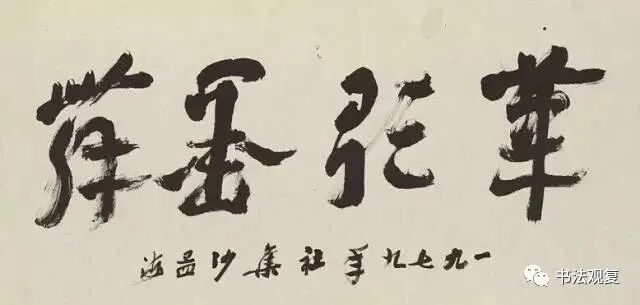 筆歌墨舞
一九七九年社集沙孟海
书法观复